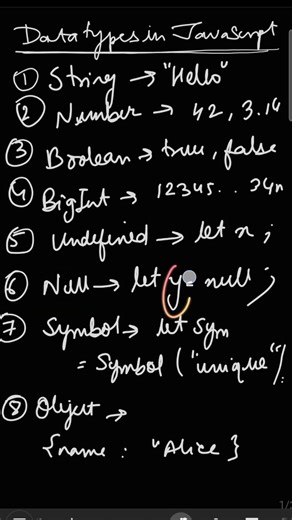 Data types in JavaScript
① String → "Hello"
② Number → 42, 3.14
③ Boolean → true, false
④ BigInt → 12345..34n
⑤ Undefined → let x ;
⑥ Null → let y = null ;
⑦ Symbol → let sym
= Symbol ("unique");
⑧ Object →
{name : "Alice}